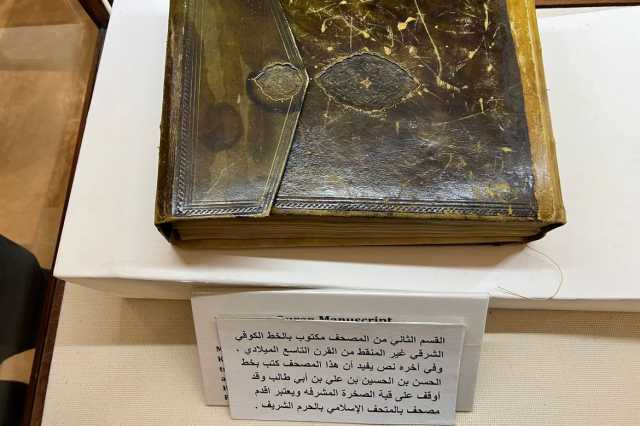 Quran Manuscript
القسم الثاني من المصحف مكتوب بالخط الكوفي
الشرقي غير المنقط من القرن التاسع الميلادي .
وفي آخره نص يفيد أن هذا المصحف كتب بخط
الحسن بن الحسين بن علي بن أبي طالب وقد
أوقف على قبة الصخرة المشرفه ويعتبر اقدم
مصحف بالمتحف الإسلامي بالحرم الشريف .